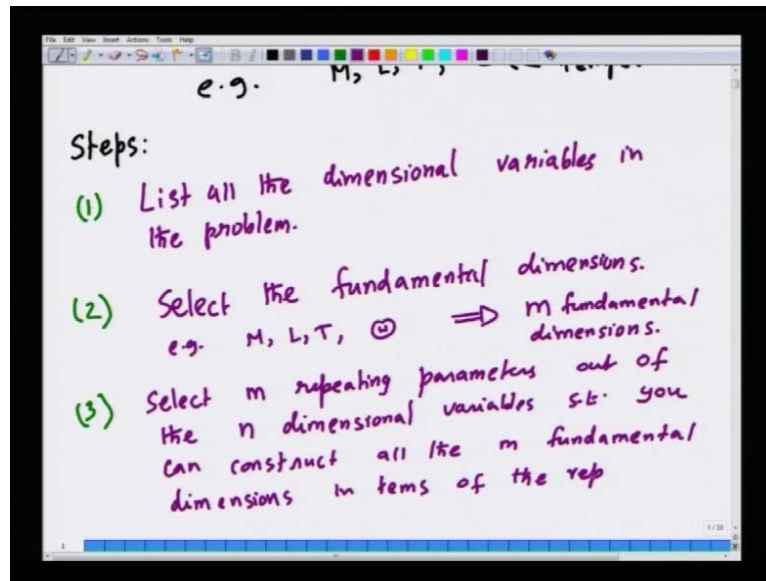 File Edit View Insert Actions Tools Help
e.g. M, L, T,
Steps:
(1) List all the dimensional variables in
the problem.
(2) Select the fundamental dimensions.
e.g. M, L, T, Θ ⇒ m fundamental
dimensions.
(3) Select m repeating parameters out of
the n dimensional variables s.t. you
can construct all the m fundamental
dimensions in tems of the rep
1